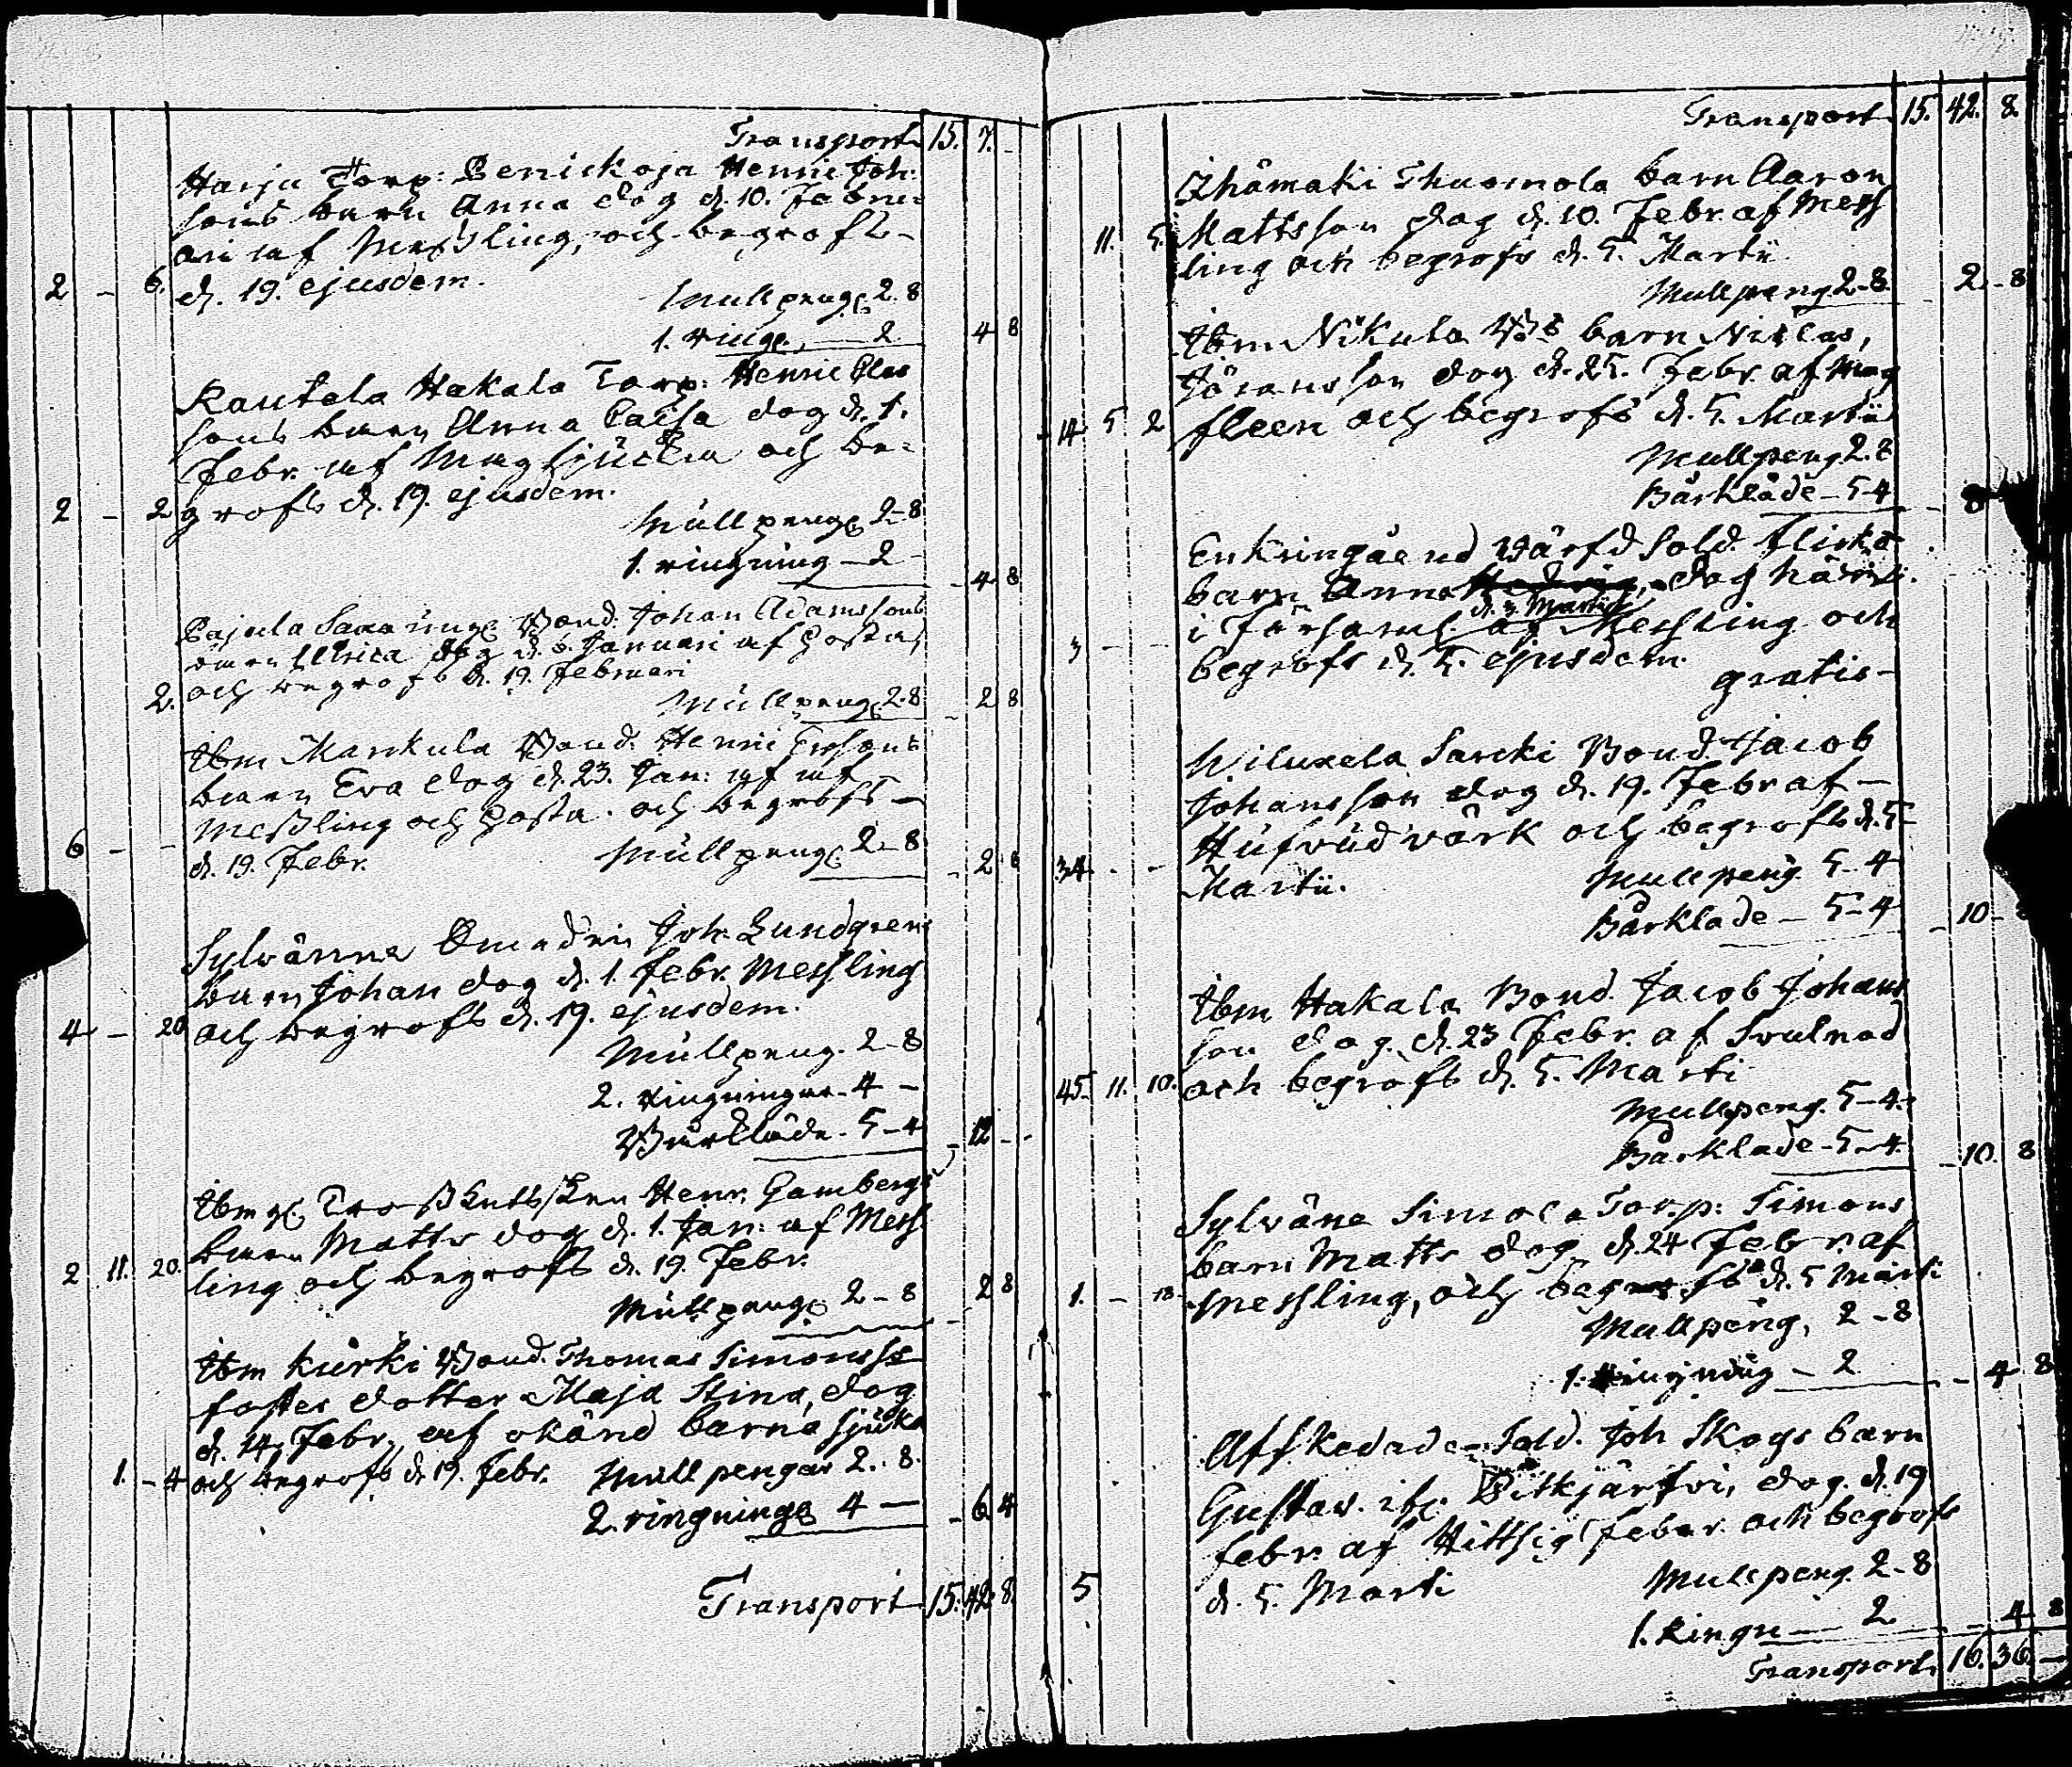 Transport 15. 7. -
Harju Torp: Penickoja Henric Joh:
sons barn Anna dog d. 10. Febru=
ari af Messling, och begrofs -
2 - 6. d. 19. ejusdem.
Mullpeng 2. 8
1. ringn. - 2. 4 8
Rautela Hakala Torp. Henric Clas
sons barn Anna Caisa dog d. 1.
Febr. af Magsjucka och be=
2 - 2 grofs d. 19. ejusdem.
Mullpeng 2-8
1. ringning - 2 - - 4. 8
Pajula Saxa Bond. Johan Adamssons
barn Ulrica dog d. 6. Januari af Hosta,
2. och begrofs d. 19. Februari
Mullpeng. 2. 8 - 2 8
Ibm Markula Bond. Henric Ersons
barn Eva dog d. 23. Jan: af af
Messling och Hosta. och begrofs -
6 - - d. 19. Febr. Mullpeng. 2-8 - 2 8
Sylvänne Joh. Lundgrens
barn Johan dog d. 1. Febr. Messling
4 - 20 och begrofs d. 19. ejusdem.
Mullpeng. 2-8
2. ringningar. 4 -
Bårkläde. 5-4 - 12 - -
Ibm Henr. Gambergs
barn Matts dog d. 1. Jan: af Mess
2 11. 20. ling och begrofs d. 19. Febr.
Mullpeng. 2-8 - 2 8
Ibm Kurki Bond. Thomas Simonss
foster dotter Maja Stina, dog
d. 14. Febr. af okänd barna sjuka
1. - 4 och begrofs d. 19. Febr. Mullpengar 2. 8.
2. ringning 4 - - 6 4
Transport 15. 42. 8.
Transport 15. 42. 8.
Ihämäki Thuomola barn Aaron
11. 5. Mattsson dog d. 10. Febr. af Mess
ling och begrofs d. 5. Martii
Mullpeng 2-8. - 2 - 8
Ibm Nikula barn Niclas,
Göransson dog d. 25. Febr. af Mag
14 5 2 fleen och begrofs d. 5. Martii
Mullpeng 2. 8
Bårkläde - 5-4 - 8
Enkringäend Värfd Sold. Flinks
barn Anna dog härst.
d. 3. Martii
3 - - i Församl. af Messling och
begrofs d. 5. ejusdem.
gratis -
Wiluxela Sarcki Bond. Jacob
Johansson dog d. 19. Febr af -
Hufvudvärk och begrofs d. 5
34. - - Martii. Mullpeng 5-4
Bårkläde - 5-4 - 10 -
Ibm Hakala Bond. Jacob Johans
son dog. d. 23 Febr. af Svulnad
45. 11. 10. och begrofs d. 5. Marti
Mullpeng. 5-4.
Bårkläde - 5-4 - 10. 8
Sylväne Simola Torp. Simons
barn Matts dog d. 24 Febr. af
1. - 18. Messling, och begrofs d. 5 Marti
Mullpeng, 2-8
1. Ringning - 2 - 4 8
Afskedade Sold. Joh Skogs barn
Gustav. Pitkjärfvi, dog. d. 19
febr. af Hittsig Feber. och begrofs
5 d. 5. Marti Mullpeng. 2-8
1. Ringn - 2 - 4 8
Transport 16. 36. -